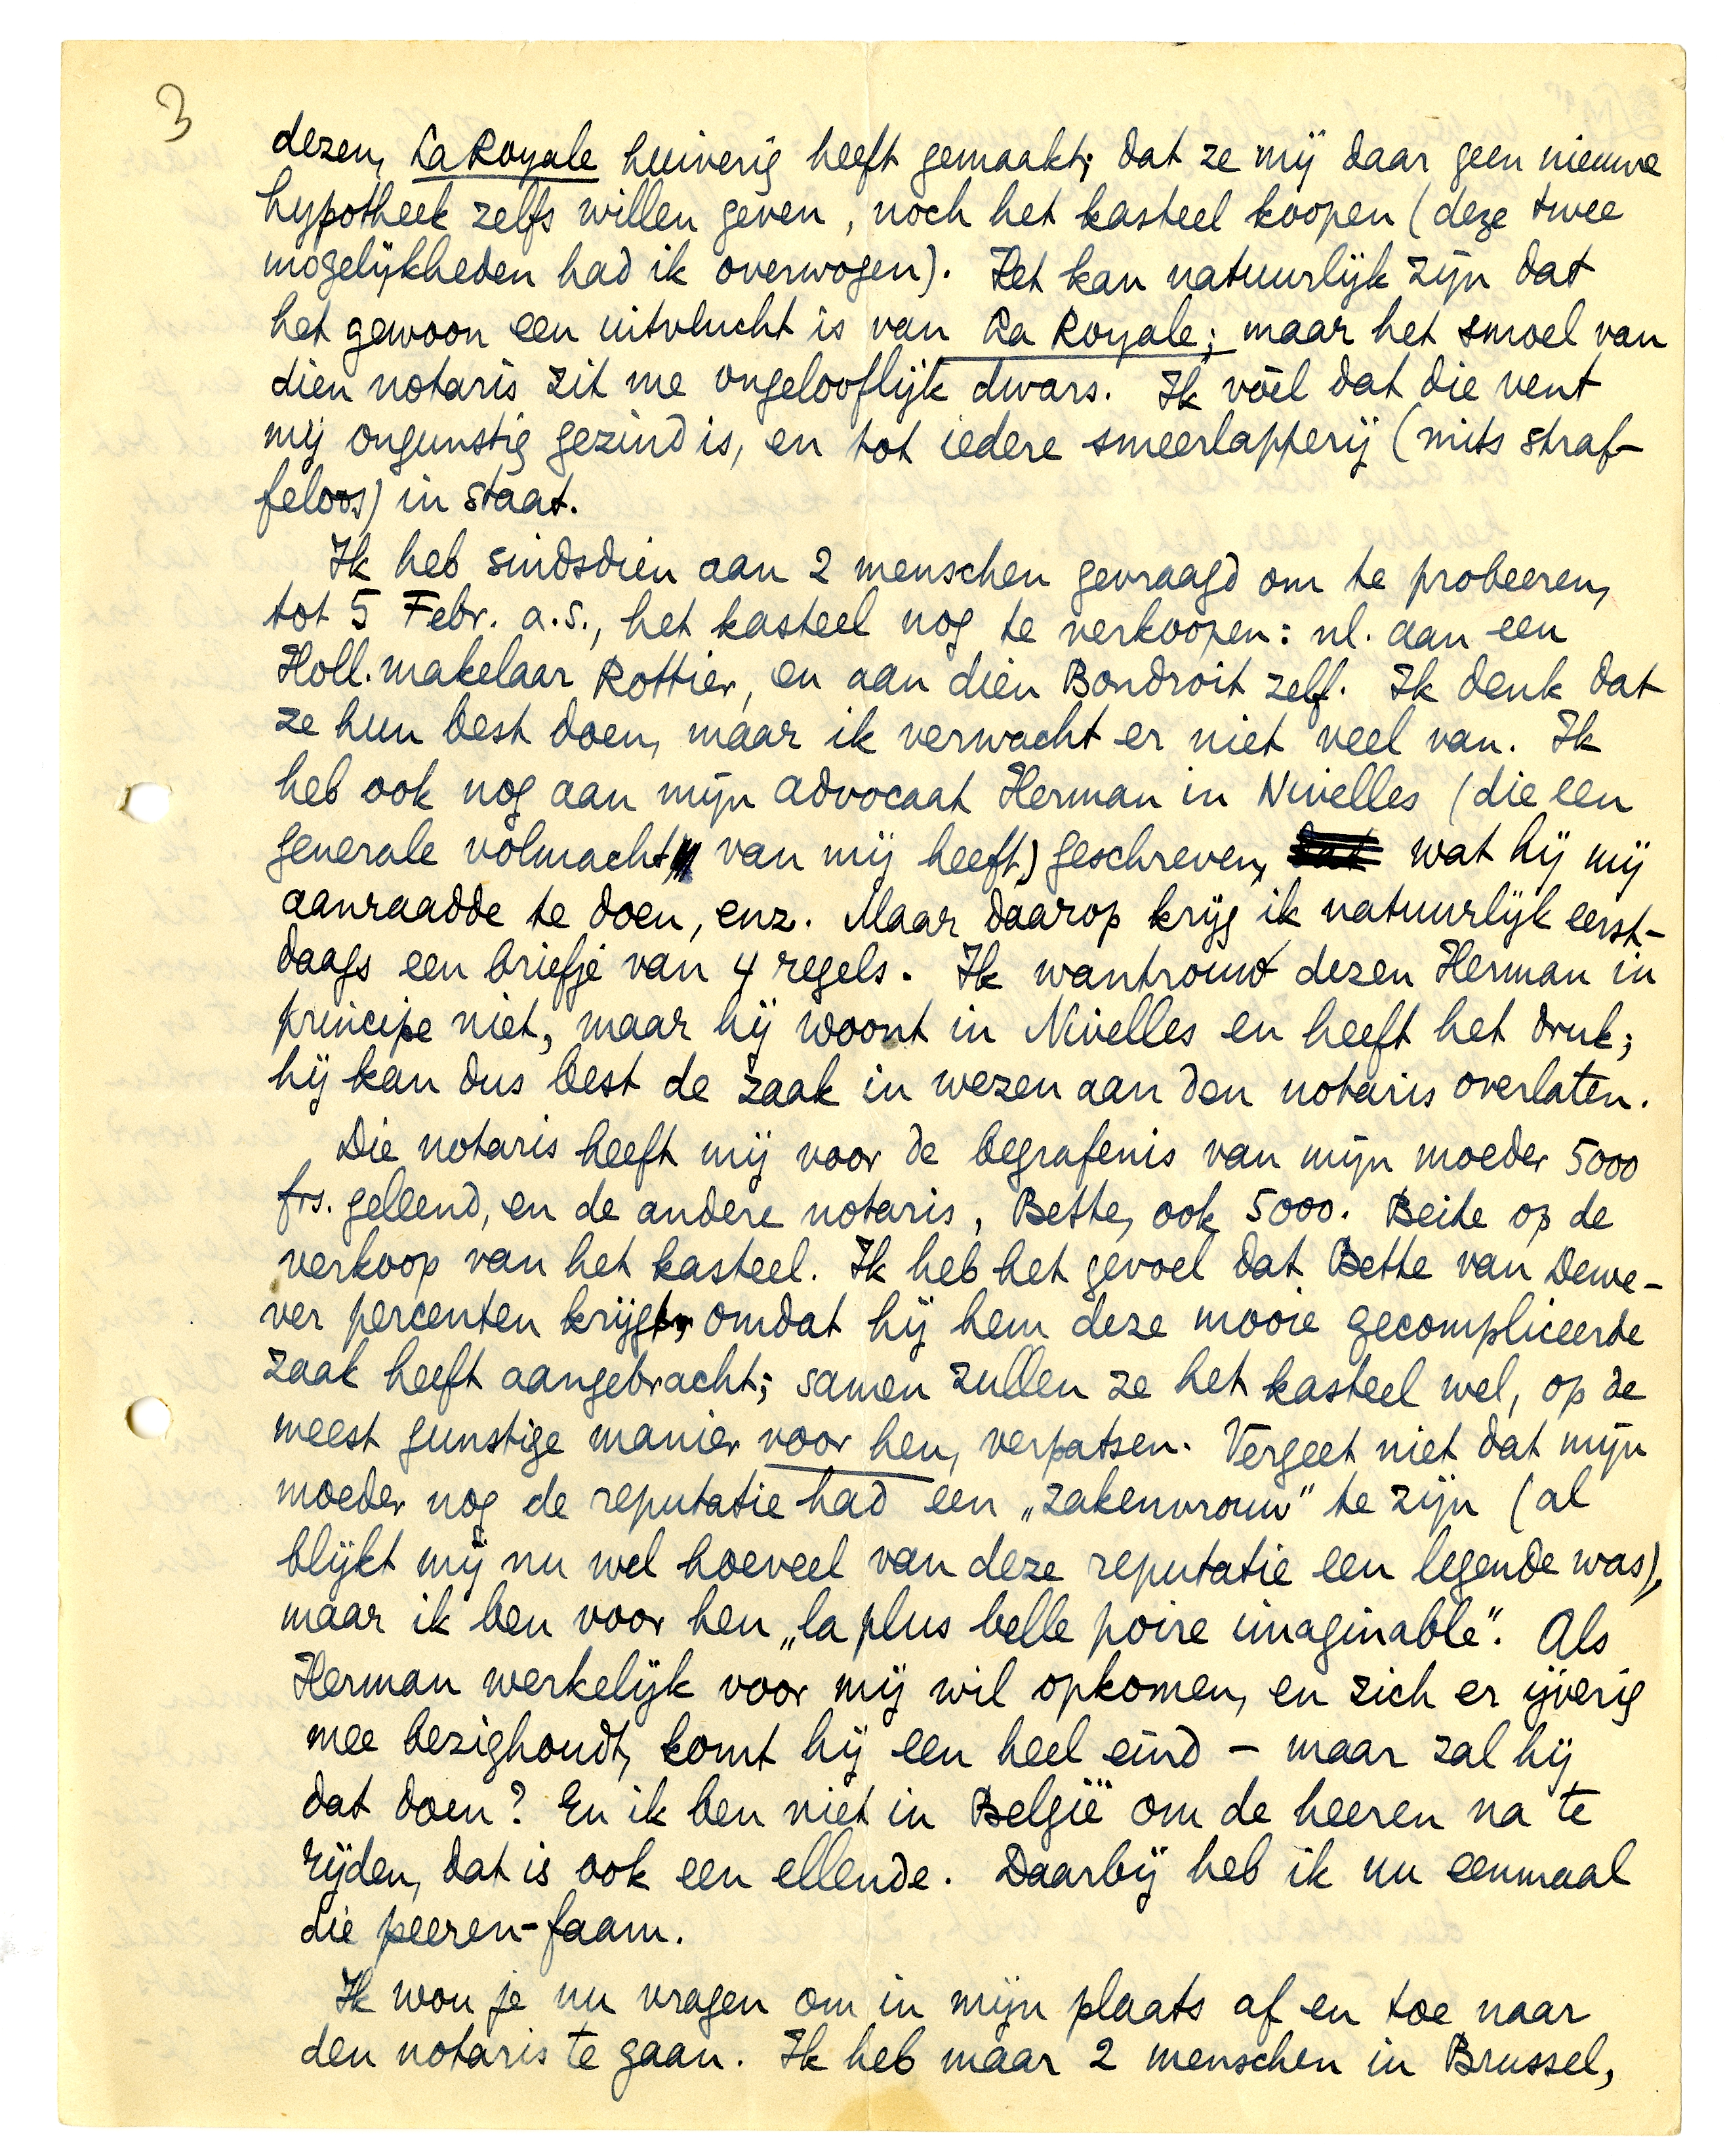 3
dezen, La Royale huiverig heeft gemaakt; dat ze mij daar geen nieuwe
hypotheek zelfs willen geven, noch het kasteel koopen (deze twee
mogelijkheden had ik overwogen). Het kan natuurlijk zijn dat
het gewoon een uitvlucht is van La Royale; maar het smoel van
dien notaris zit me ongelooflijk dwars. Ik vòel dat die vent
mij ongunstig gezind is, en tot iedere smeerlapperij (mits straf-
feloos) in staat.
Ik heb sindsdien aan 2 menschen gevraagd om te probeeren,
tot 5 Febr. a.s., het kasteel nog te verkoopen: nl. aan een
Holl. makelaar Rottier, en aan dien Bondroit zelf. Ik denk dat
ze hun best doen, maar ik verwacht er niet veel van. Ik
heb ook nog aan mijn advocaat Herman in Nivelles (die een
generale volmacht van mij heeft) geschreven, wat hij mij
aanraadde te doen, enz. Maar daarop krijg ik natuurlijk eerst-
daags een briefje van 4 regels. Ik wantrouw dezen Herman in
principe niet, maar hij woont in Nivelles en heeft het druk;
hij kan dus best de zaak in wezen aan den notaris overlaten.
Die notaris heeft mij voor de begrafenis van mijn moeder 5000
frs. geleend, en de andere notaris, Bette, ook 5000. Beide op de
verkoop van het kasteel. Ik heb het gevoel dat Bette van Dewe-
ver percenten krijgt, omdat hij hem deze mooie gecompliceerde
zaak heeft aangebracht; samen zullen ze het kasteel wel, op de
meest gunstige manier voor hen, verpatsen. Vergeet niet dat mijn
moeder nog de reputatie had een „zakenvrouw" te zijn (al
blijkt mij nu wel hoeveel van deze reputatie een legende was),
maar ik ben voor hen „la plus belle poire imaginable". Als
Herman werkelijk voor mij wil opkomen, en zich er ijverig
mee bezighoudt, komt hij een heel eind – maar zal hij
dat doen? En ik ben niet in België om de heeren na te
rijden, dat is ook een ellende. Daarbij heb ik nu eenmaal
die peeren-faam.
Ik wou je nu vragen om in mijn plaats af en toe naar
den notaris te gaan. Ik heb maar 2 menschen in Brussel,